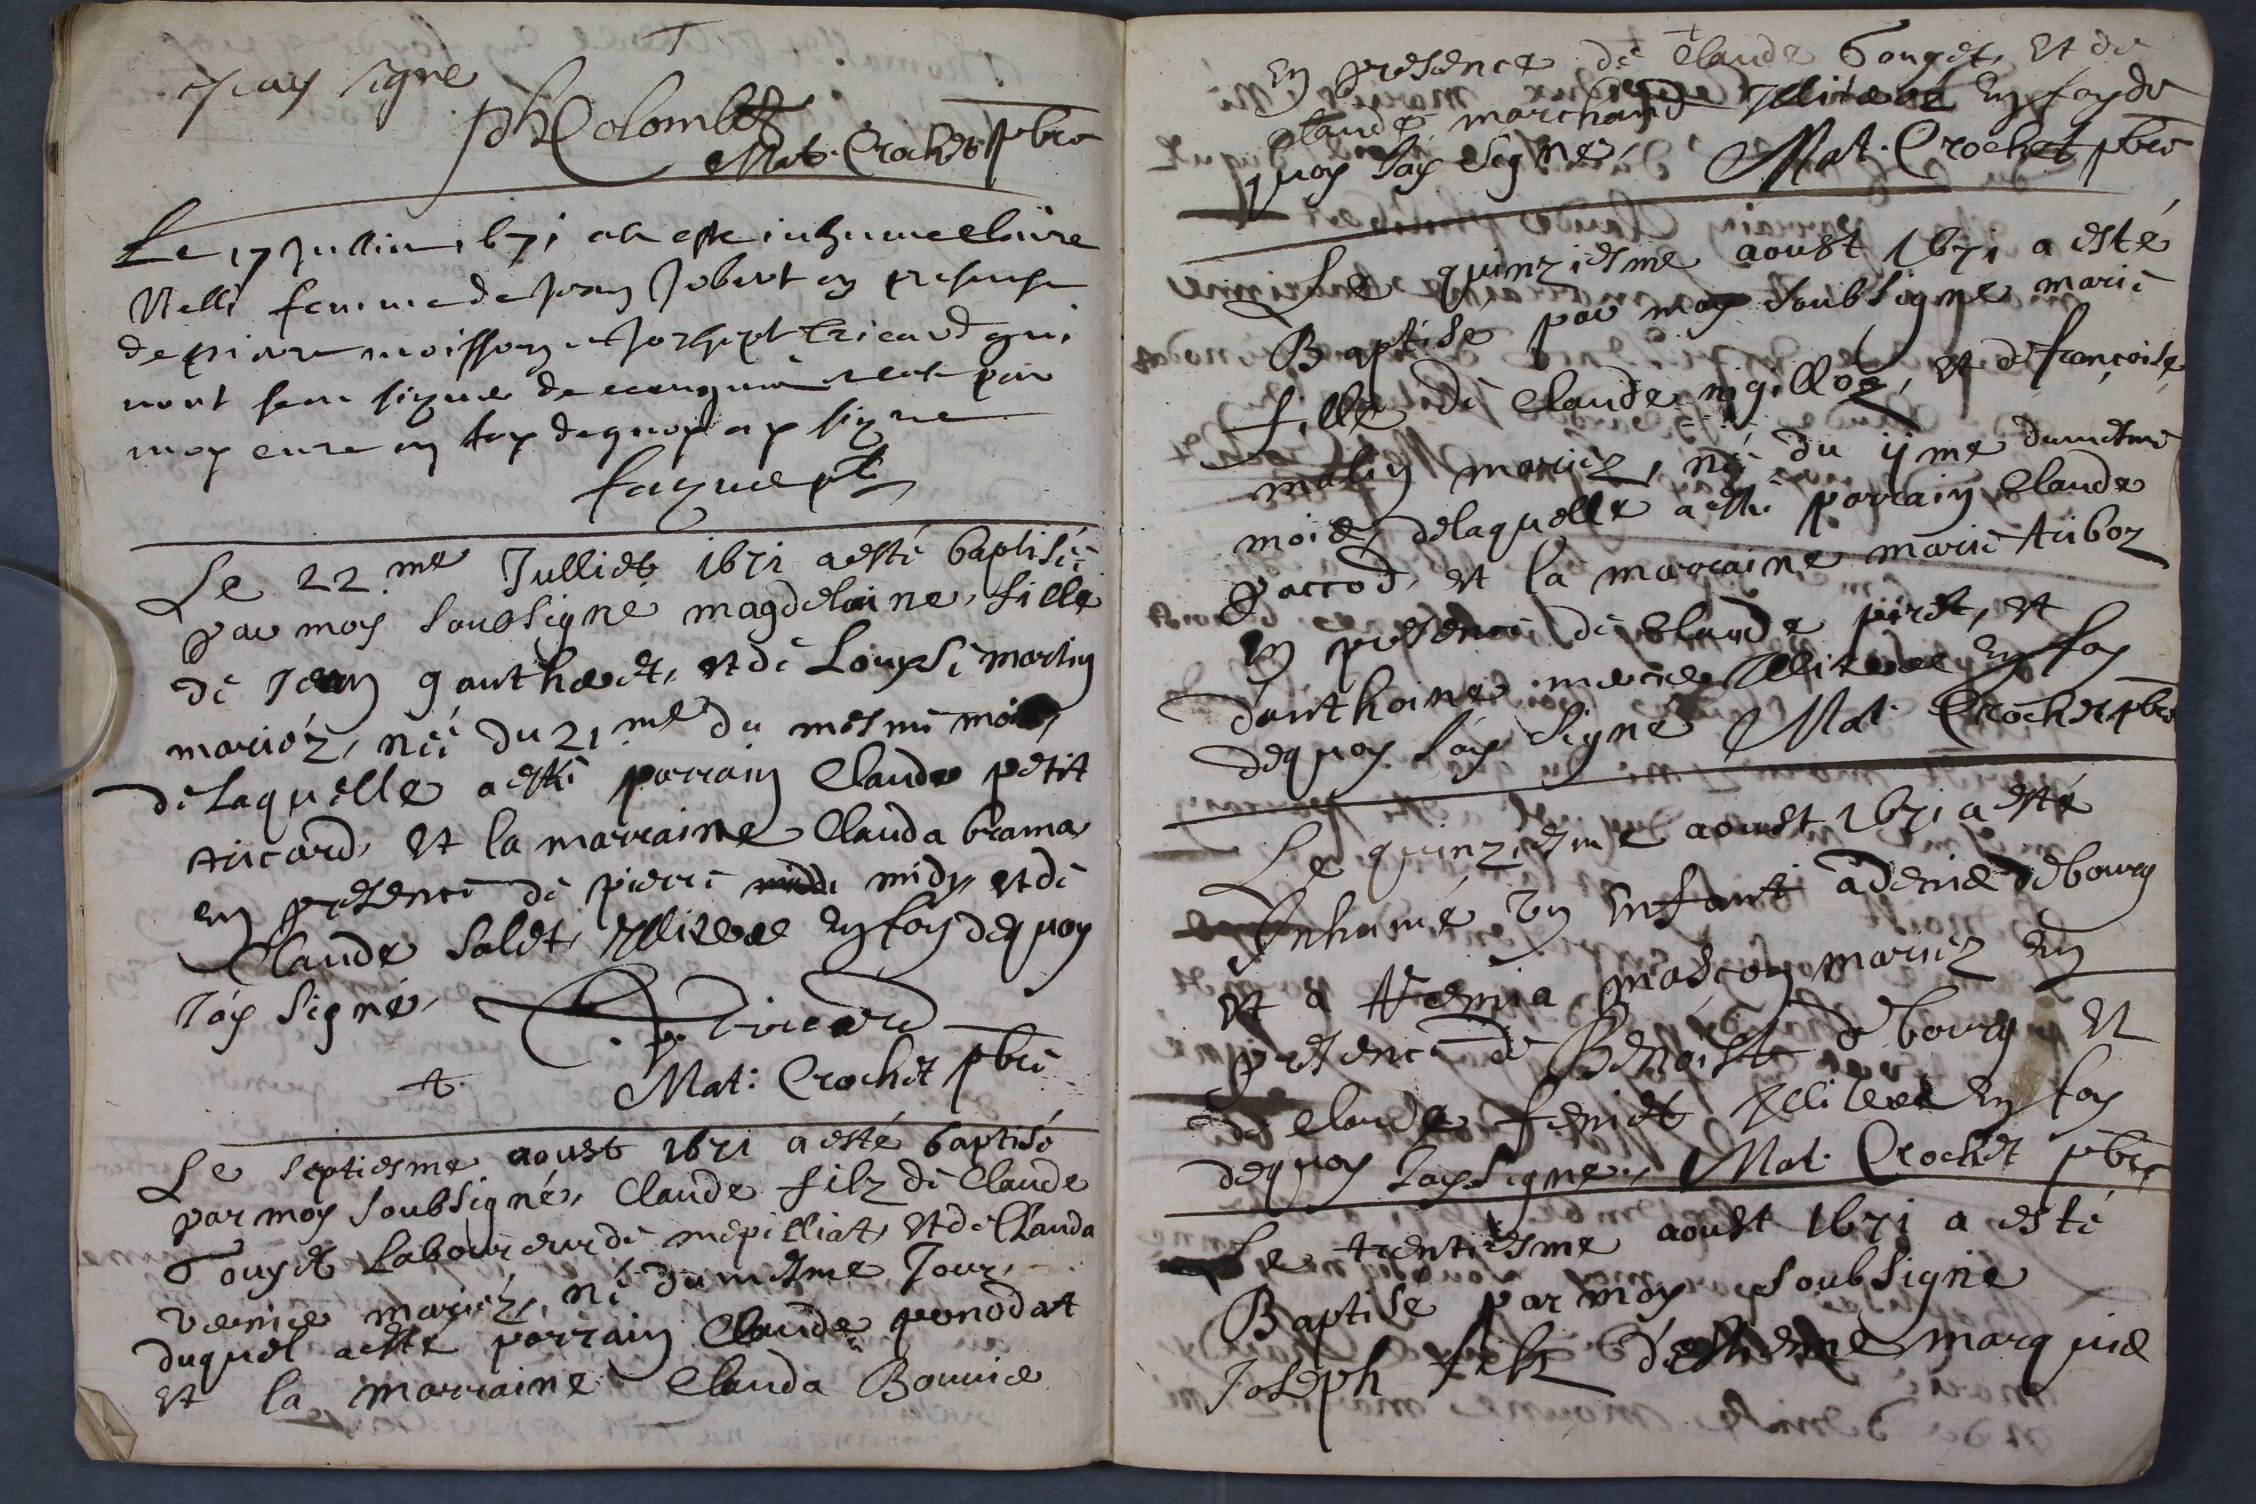 Jay signe
Ph Colombet
Mat. Crochet pbre
Le 17 Jullin 1671 ah este inhume Claire
Velli femme de Jean Jobert en presense
de piarre moisson et Joseph tricard qui
nont seu signe de ce enquis par
moy cure en foy de quoy ay signe
Le 22 me Julliet 1671 a esté baptisée
par moy soubsigné magdelaine, fille
de Jean gautheret, et de Louyse martin
mariéz, née du 21 me du mesme mois,
de laquelle a esté parrain Claude petit
tricard, et la marraine Clauda brama
en presence de pierre midy et de
Claude Salet, Illiteres en foy de quoy
Jay signé,
C. p. tricard
Mat: Crochet pbre
Le septiesme aoust 1671 a esté baptisé
par moy soubsigné, Claude filz de Claude
Gouget Laboureur de mepilliat, et de Clauda
mariéz, né du mesme Jour,
duquel a esté parrain Claude ponodat
et la marraine Clauda Bouuier
En presence de Claude Gouget, et de
Claude marchand Illiteres En foy de
quoy Jay signé, Mat. Crochet pbre
Le quinziesme aoust 1671 a esté
Baptisé par moy soubsigne marie
fille de Claude nigilloz, et de françoise
malin mariez, née du ijme du mesme
mois, delaquelle a esté parrain Claude
paccod, et la marraine marie triboz
En presence de Claude piret, et
danthoine mercier Illiteres En foy
dequoy Jay signé Mat. Crochet pbre
Le quinziesme aoust 1671 a esté
Inhumé Un Enfant a denis debourg
et a mascon mariez En
presence de Benoist de bourg et
de Claude feniet Illiteres En foy
dequoy Jay signe, Mat. Crochet pbre
Le trentiesme aoust 1671 a esté
Baptise par moy soubsigne
Joseph filz destienne marquis